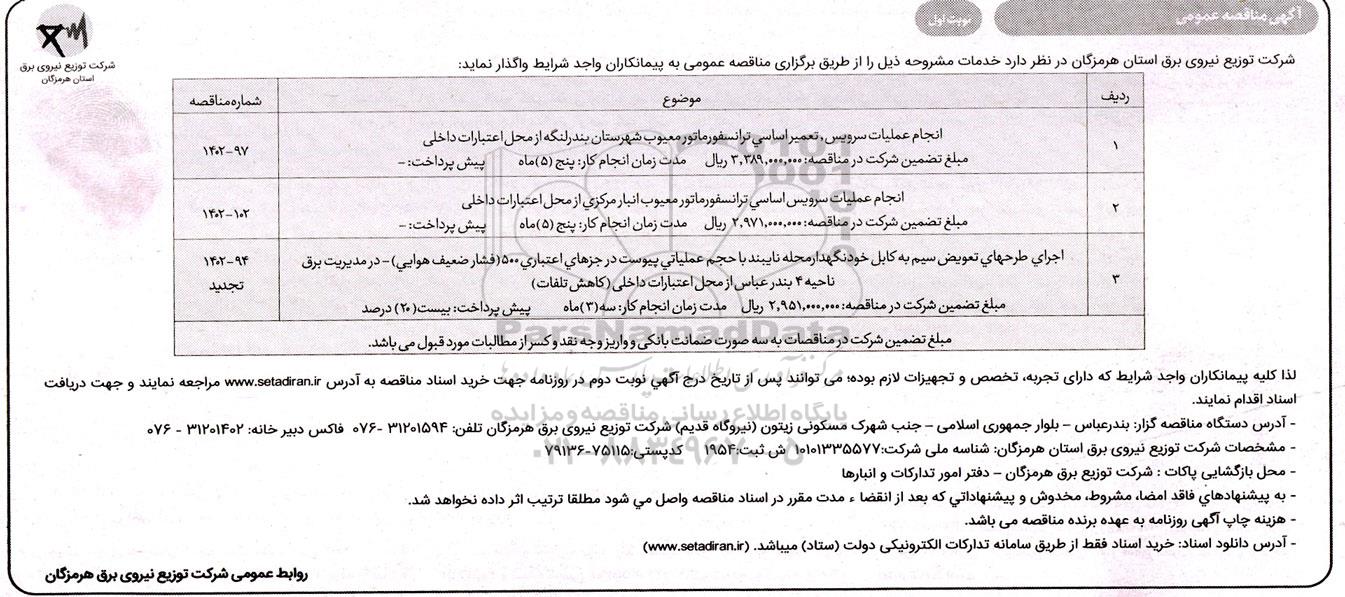 آگهی مناقصه عمومی
نوبت اول
شرکت توزیع نیروی برق
استان هرمزگان
شرکت توزیع نیروی برق استان هرمزگان در نظر دارد خدمات مشروحه ذیل را از طریق برگزاری مناقصه عمومی به پیمانکاران واجد شرایط واگذار نماید:
ردیف موضوع شماره مناقصه
۱ انجام عملیات سرویس، تعمیر اساسي ترانسفورماتور معیوب شهرستان بندرلنگه از محل اعتبارات داخلی ۱۴۰۲-۹۷
مبلغ تضمین شرکت در مناقصه: ۳,۳۸۹,۰۰۰,۰۰۰ ریال مدت زمان انجام کار: پنج (۵) ماه پیش پرداخت: -
۲ انجام عملیات سرویس اساسي ترانسفورماتور معیوب انبار مرکزي از محل اعتبارات داخلی ۱۴۰۲-۱۰۲
مبلغ تضمین شرکت در مناقصه: ۲,۹۷۱,۰۰۰,۰۰۰ ریال مدت زمان انجام کار: پنج (۵) ماه پیش پرداخت: -
۳ اجراي طرحهاي تعویض سیم به کابل خودنگهدار محله نایبند با حجم عملیاتي پیوست در جزهاي اعتباري ۵۰۰ (فشار ضعیف هوایي) - در مدیریت برق ۱۴۰۲-۹۴
ناحیه ۴ بندر عباس از محل اعتبارات داخلی (کاهش تلفات) تجدید
مبلغ تضمین شرکت در مناقصه: ۲,۹۵۱,۰۰۰,۰۰۰ ریال مدت زمان انجام کار: سه (۳) ماه پیش پرداخت: بیست (۲۰) درصد
مبلغ تضمین شرکت در مناقصات به سه صورت ضمانت بانکی و واریز وجه نقد و کسر از مطالبات مورد قبول می باشد.
ParsNamadData
لذا کلیه پیمانکاران واجد شرایط که دارای تجربه، تخصص و تجهیزات لازم بوده؛ می توانند پس از تاریخ درج آگهي نوبت دوم در روزنامه جهت خرید اسناد مناقصه به آدرس www.setadiran.ir مراجعه نمایند و جهت دریافت
اسناد اقدام نمایند.
پایگاه اطلاع رسانی مناقصه و مزایده
- آدرس دستگاه مناقصه گزار: بندرعباس - بلوار جمهوری اسلامی - جنب شهرک مسکونی زیتون (نیروگاه قدیم) شرکت توزیع نیروی برق هرمزگان تلفن: ۳۱۲۰۱۵۹۴ -۰۷۶ فاکس دبیر خانه: ۳۱۲۰۱۴۰۲ - ۰۷۶
- مشخصات شرکت توزیع نیروی برق استان هرمزگان: شناسه ملی شرکت: ۱۰۱۰۱۳۳۵۵۷۷ ش ثبت: ۱۹۵۴ کدپستی: ۷۵۱۱۵-۷۹۱۳۶
- محل بازگشایی پاکات : شرکت توزیع برق هرمزگان - دفتر امور تدارکات و انبارها
- به پیشنهادهاي فاقد امضا، مشروط، مخدوش و پیشنهاداتي که بعد از انقضا ء مدت مقرر در اسناد مناقصه واصل مي شود مطلقا ترتیب اثر داده نخواهد شد.
- هزینه چاپ آگهی روزنامه به عهده برنده مناقصه می باشد.
- آدرس دانلود اسناد: خرید اسناد فقط از طریق سامانه تدارکات الکترونیکی دولت (ستاد) میباشد. (www.setadiran.ir)
روابط عمومی شرکت توزیع نیروی برق هرمزگان